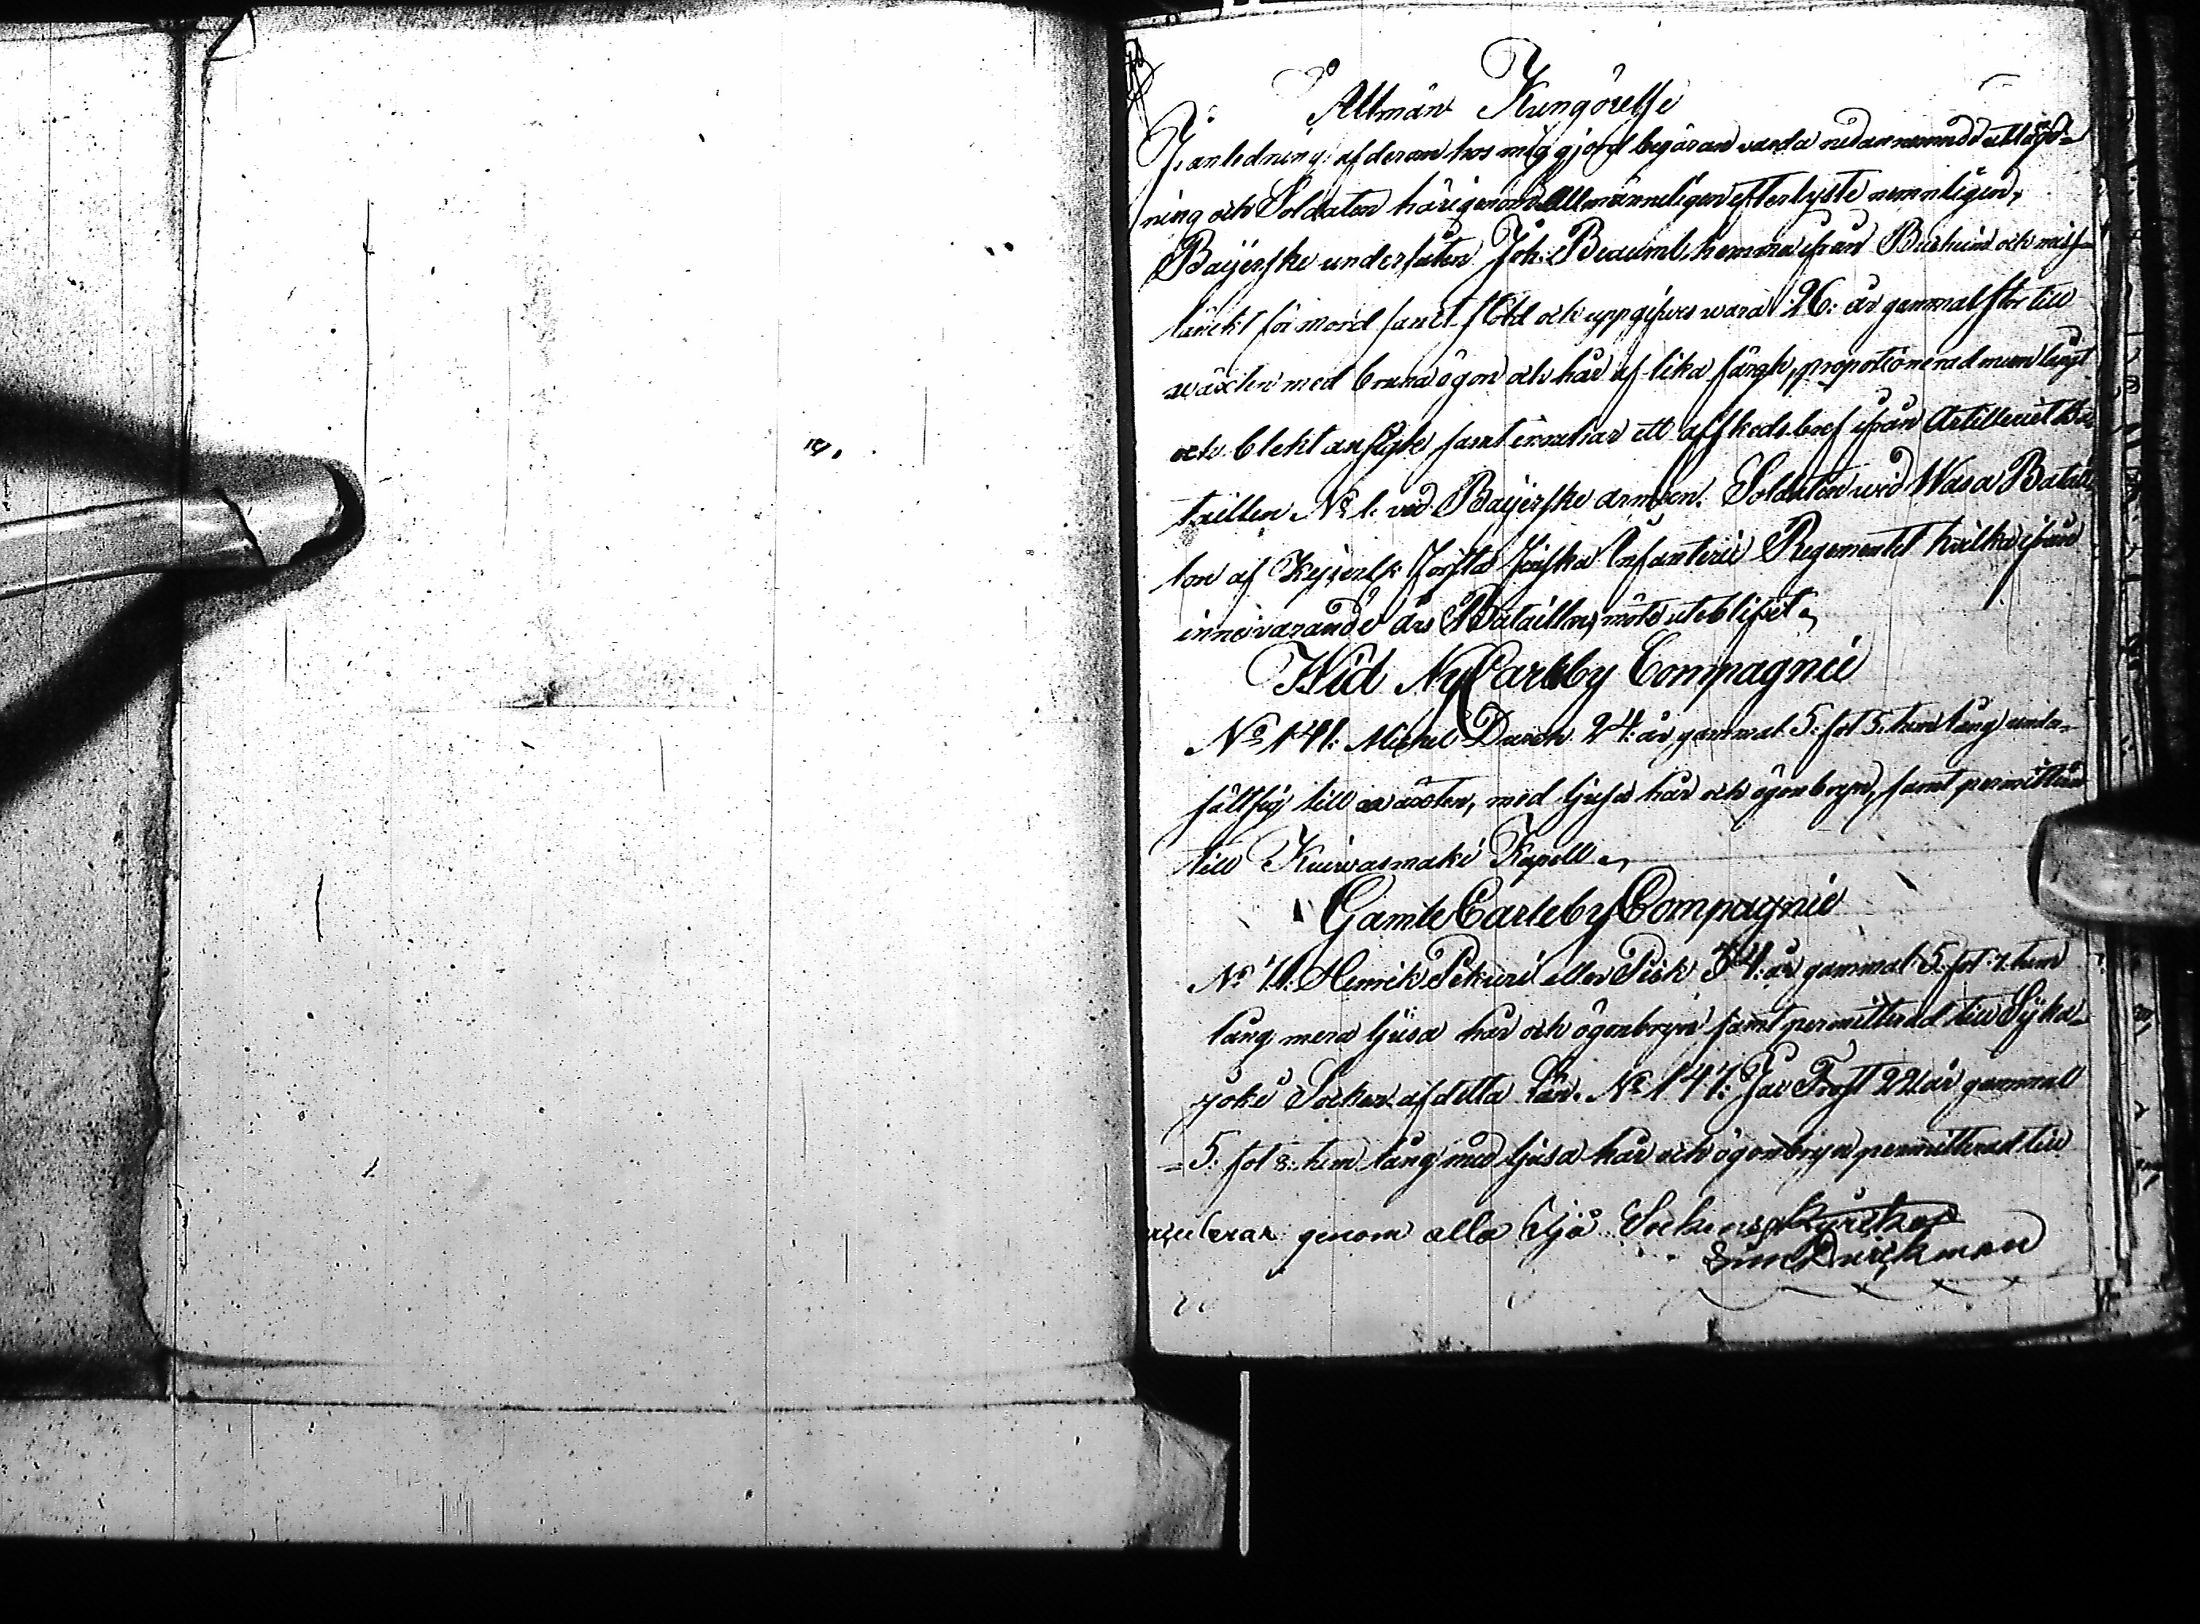 Allmän Kungörelse
I anledning af derom hos mig gjord begäran varda nedannemnde utläggd-
ning och Soldaten härigenom Allmänneligen efterlyste nemnligen,
Bayerske undersåten Joh: Beauml hemma ifrån Burheim och miss-
tänckt för mord samt stöld och uppgifves wara 26: år gammal stor till
wäxten med bruna ögon och hår af lika färgk, proportionerad mun långt
och blekt ansigte samt innehar ett afskeds bref ifrån Artilleriet
taillen No 1. ved Bayerske armeen. Soldaten wid Wasa Batail
lon af Kejserl: Första Finska Infanterie Regementet hvilka ifrån
innevarande års Bataillons möte uteblifvit,
Wid Ny Carleby Compagnie
No 141: Michel Dusch 24: år gammal 5: fot 5: tum lång under-
sättsig till wäxten, med ljusa hår och ögonbryn, samt permitterad
till Kuiwasmäki Kapell,
Gamle Carleby Compagnie
No 71: Henrik Pekuri eller Pisk 34: år gammal 5: fot 7: tum
lång mera ljusa hår och ögonbryn samt permitterad till Syka-
joki Socken af detta län. No 147: Jac Frost 22 år gammal
5: fot 8: tum lång med ljusa hår och ögonbryn permitterad till
genom alla Sjö Sockens kyrckor